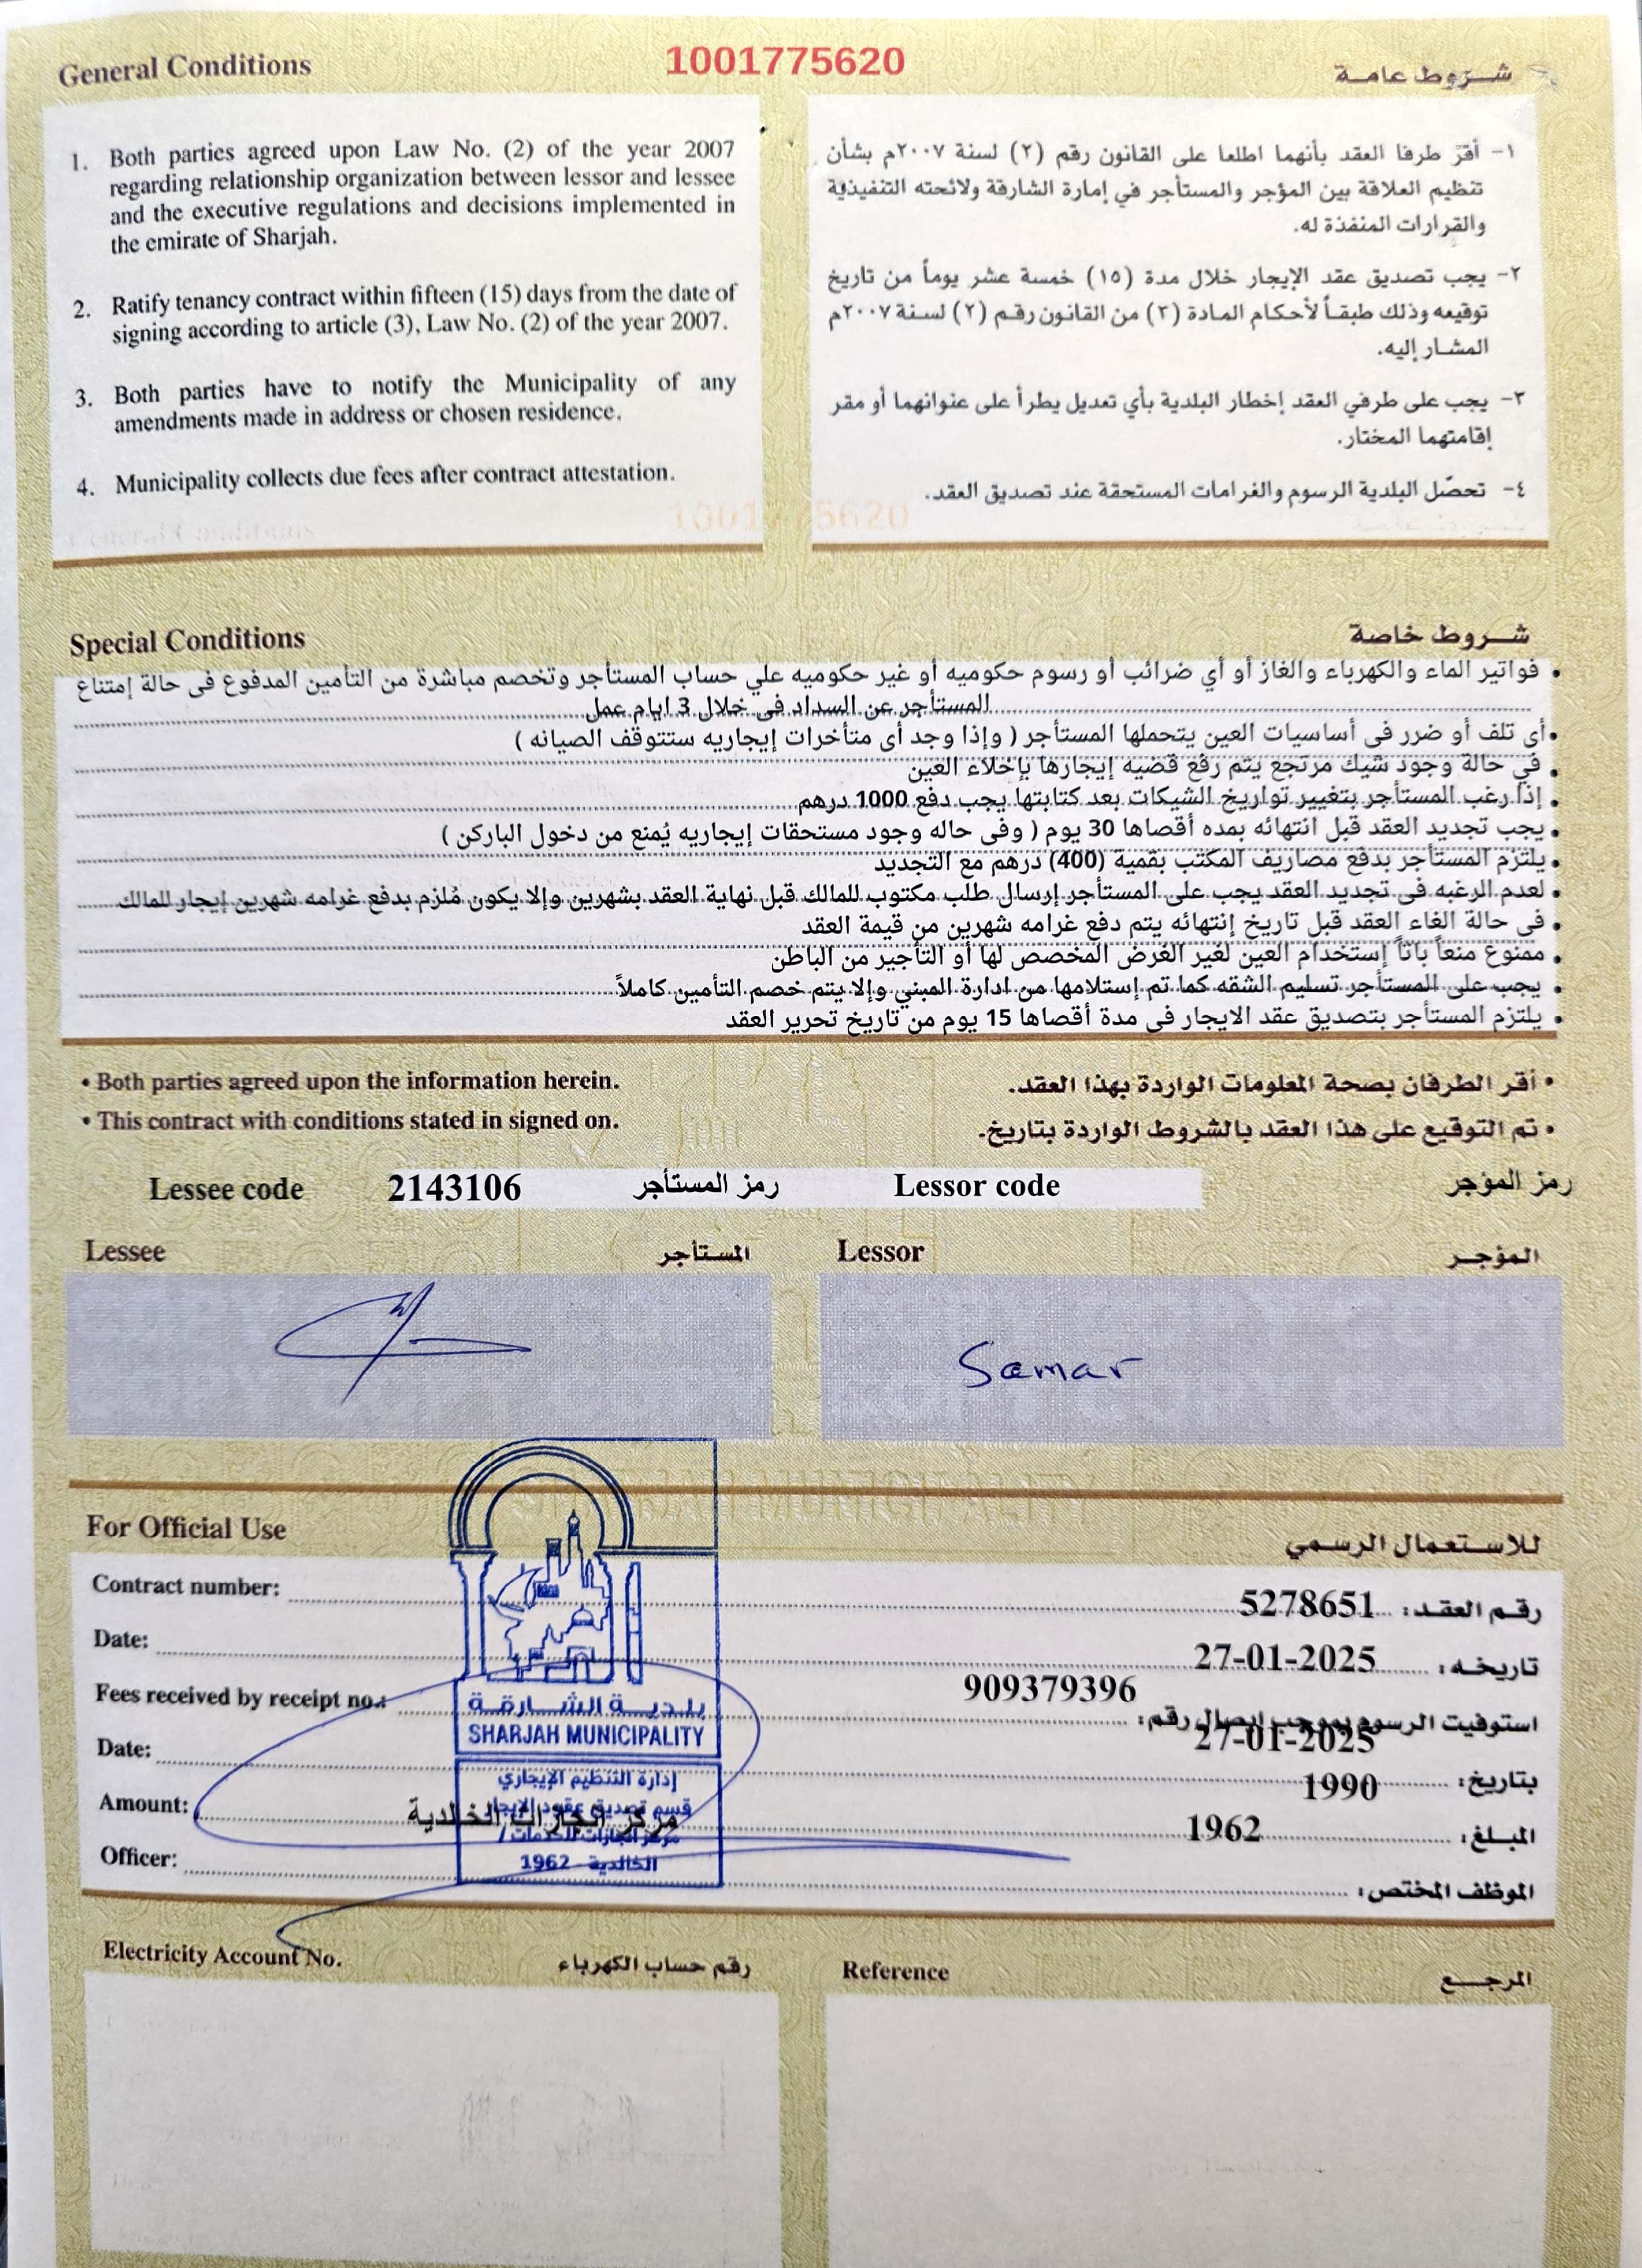 General Conditions
1001775620
شروط عامة
1. Both parties agreed upon Law No. (2) of the year 2007
regarding relationship organization between lessor and lessee
and the executive regulations and decisions implemented in
the emirate of Sharjah.
2. Ratify tenancy contract within fifteen (15) days from the date of
signing according to article (3), Law No. (2) of the year 2007.
3. Both parties have to notify the Municipality of any
amendments made in address or chosen residence.
4. Municipality collects due fees after contract attestation.
١- أقرّ طرفا العقد بأنهما اطلعا على القانون رقم (٢) لسنة ٢٠٠٧م بشأن
تنظيم العلاقة بين المؤجر والمستأجر في إمارة الشارقة ولائحته التنفيذية
والقرارات المنفذة له.
٢- يجب تصديق عقد الإيجار خلال مدة (١٥) خمسة عشر يوماً من تاريخ
توقيعه وذلك طبقاً لأحكام المادة (٣) من القانون رقم (٢) لسنة ٢٠٠٧م
المشار إليه.
٣- يجب على طرفي العقد إخطار البلدية بأي تعديل يطرأ على عنوانهما أو مقر
إقامتهما المختار.
٤- تحصّل البلدية الرسوم والغرامات المستحقة عند تصديق العقد.
1001775620
General Conditions
Special Conditions
شروط خاصة
• فواتير الماء والكهرباء والغاز أو أي ضرائب أو رسوم حكوميه أو غير حكوميه علي حساب المستأجر وتخصم مباشرة من التأمين المدفوع فى حالة إمتناع
المستأجر عن السداد فى خلال 3 ايام عمل
• أى تلف أو ضرر فى أساسيات العين يتحملها المستأجر ( وإذا وجد أى متأخرات إيجاريه ستتوقف الصيانه )
• في حالة وجود شيك مرتجع يتم رفع قضيه إيجارها بإخلاء العين
• إذا رغب المستأجر بتغيير تواريخ الشيكات بعد كتابتها يجب دفع 1000 درهم
• يجب تجديد العقد قبل انتهائه بمده أقصاها 30 يوم ( وفى حاله وجود مستحقات إيجاريه يُمنع من دخول الباركن )
• يلتزم المستأجر بدفع مصاريف المكتب بقمية (400) درهم مع التجديد
• لعدم الرغبه فى تجديد العقد يجب على المستأجر إرسال طلب مكتوب للمالك قبل نهاية العقد بشهرين وإلا يكون مُلزم بدفع غرامه شهرين إيجار للمالك
• فى حالة الغاء العقد قبل تاريخ إنتهائه يتم دفع غرامه شهرين من قيمة العقد
• ممنوع منعاً باتاً إستخدام العين لغير الغرض المخصص لها أو التأجير من الباطن
• يجب على المستأجر تسليم الشقه كما تم إستلامها من ادارة المبني وإلا يتم خصم التأمين كاملاً
• يلتزم المستأجر بتصديق عقد الايجار فى مدة أقصاها 15 يوم من تاريخ تحرير العقد
• Both parties agreed upon the information herein.
• أقر الطرفان بصحة المعلومات الواردة بهذا العقد.
• This contract with conditions stated in signed on.
• تم التوقيع على هذا العقد بالشروط الواردة بتاريخ.
Lessee code 2143106 رمز المستأجر
Lessor code رمز المؤجر
Lessee المستأجر
Lessor المؤجر
Samar
For Official Use
للاستعمال الرسمي
Contract number: 5278651 رقم العقد:
Date: 27-01-2025 تاريخه:
Fees received by receipt no.: 909379396 استوفيت الرسوم بموجب إيصال رقم:
Date: 27-01-2025 بتاريخ:
1990
Amount: 1962 المبلغ:
Officer: الموظف المختص:
مركز انجازات الخالدية
بلدية الشارقة
SHARJAH MUNICIPALITY
إدارة التنظيم الإيجاري
قسم تصديق عقود الإيجار
مركز انجازات للخدمات /
الخالدية - 1962
Electricity Account No. رقم حساب الكهرباء
Reference المرجع